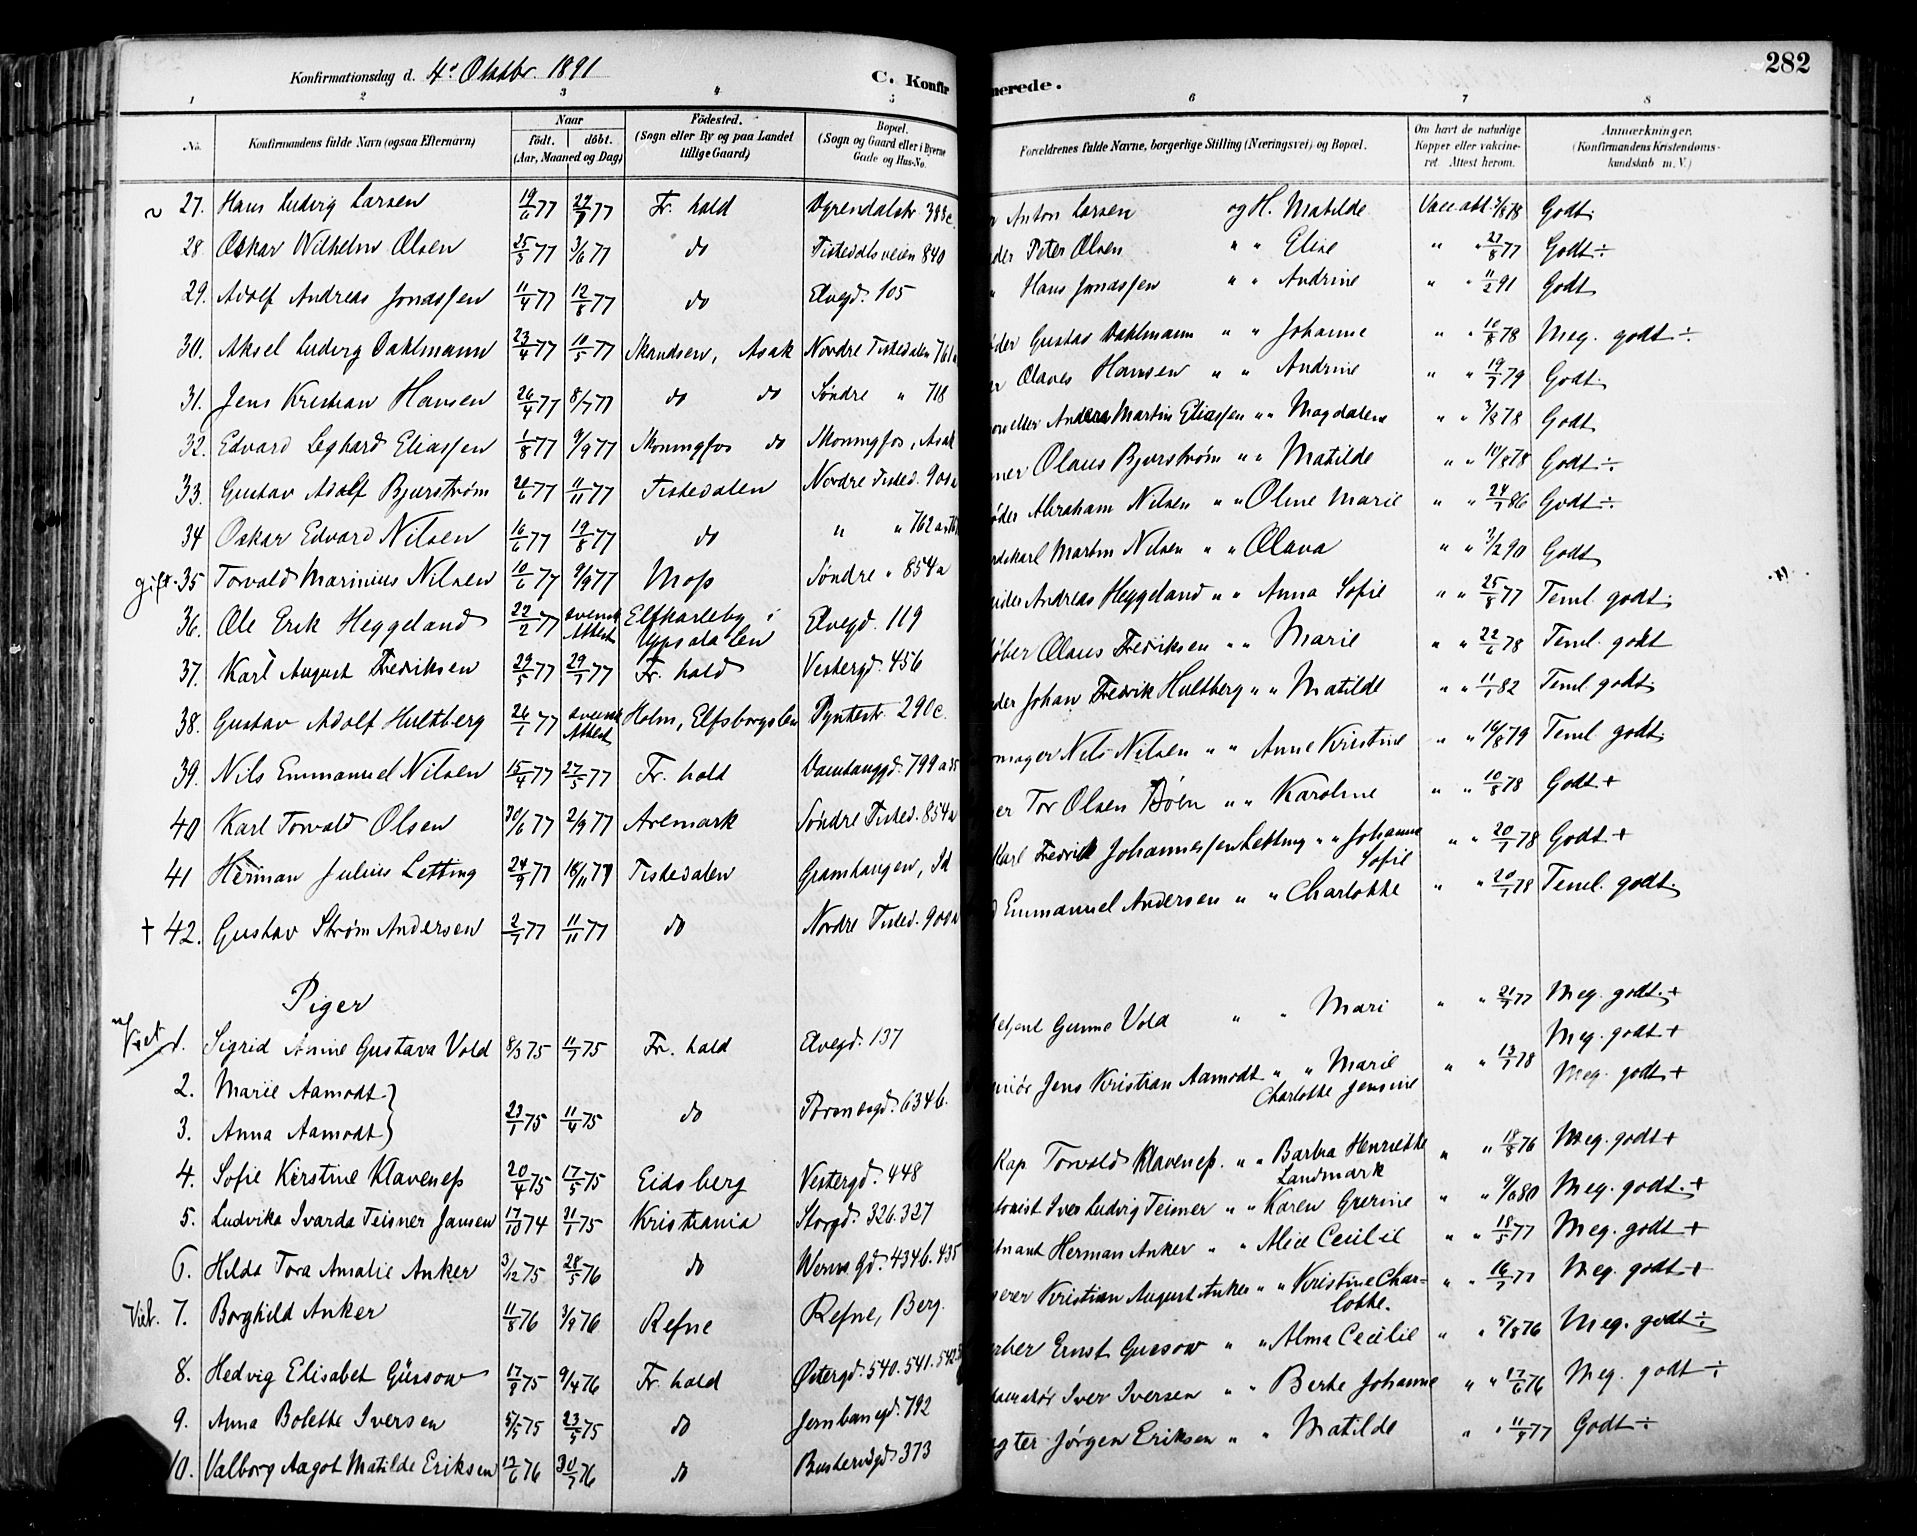 282
Konfirmationsdag d. 4de Oktbr. 1891
C. Konfirmerede.
1 2 3 4 5 6 7 8
No. Konfirmandens fulde Navn (ogsaa Efternavn) Naar født. døbt. (Aar, Maaned og Dag) Fødested. (Sogn eller By og paa Landet tillige Gaard) Bopæl. (Sogn og Gaard eller i Byerne Gade og Hus-No. Forældrenes fulde Navne, borgerlige Stilling (Næringsvei) og Bopæl. Om havt de naturlige Kopper eller vakcineret. Attest herom. Anmærkninger. (Konfirmandens Kristendomskundskab m. V.)
27. Hans Ludvig Larsen 19/6 77 77 Fr. hald 383c. Anton Larsen og H. Matilde Vacc.att. 78 Godt.
28 Oskar Wilhelm Olsen 25/5 77 3/6 77 do Tistedalsveien 840 Peter Olsen " " Elise " " 27/8 77 Godt ÷
29. Adolf Andreas Jonassen 11/4 77 12/8 77 do Elvegd. 105 " Hans Jonassen " " Andrine " " 11/2 91 Godt
30. Aksel Ludvig Dahlmann 23/4 77 10/5 77 Skandsen, Asak Nordre Tistedalen Gustav Dahlmann " " Johanne " " 10/8 78 Meg. godt ÷
31. Jens Kristian Hansen 26/4 77 8/7 77 do do Søndre " 718 Olaves Hansen " " Andrine " " 19/7 79 Godt.
32. Edvard Leghard Eliassen 1/8 77 9/9 77 Skoningfos do Skoningfos, Asak Anders Martin Eliassen " " Magdalene " " 3/8 78 Godt
33. Gustav Adolf Bjurstrøm 77 11/11 77 Tistedalen Nordre Tisted. 900a Olaus Bjurstrøm " " Matilde " " 78 Godt ÷
34 Oskar Edvard Nilsen 16/6 77 19/8 77 do " " 762 Abraham Nilsen " " Oline Marie " " 24/7 86 Godt ÷
gift. 35 Torvald Marinius Nilsen 10/6 77 9/9 77 Moss Søndre " 854a Martin Nilsen " " Olava " " 3/2 90 Godt
36. Ole Erik Heggeland 22/2 77 svensk Attest Elfkarleby i Uppsala len Elvegd. 119 Andreas Heggeland " " Anna Sofie " " 25/8 77 Teml. godt.
37. Karl August Fredriksen 29/5 77 29/7 77 Fr. hald Vestergd. 456 Olaus Fredriksen " " Marie " " 22/6 78 Teml. godt
38. Gustav Adolf Hultberg 26/1 77 svensk Attest Holm, Elfsborgslen Pyntestr. 290c. Johan Fredrik Hultberg " " Matilde " " 11/1 82 Teml. godt.
39. Nils Emmanuel Nilsen 15/4 77 27/5 77 Fr. hald 799 Nils Nilsen " " Anne Kristine " " 79 Teml. godt.
40 Karl Torvald Olsen 30/6 77 2/9 77 Aremark Søndre Tisted. 854a Tor Olsen Bøen " " Karoline " " 10/8 78 Godt +
41 Herman Julius Letting 24/9 77 18/11 77 Tistedalen Gramhaugen, Id Karl Fredrik Johannessen Letting " " Johanne Sofie " " 20/7 78 Godt +
+ 42. Gustav Strøm Andersen 2/7 77 11/11 77 do Nordre Tisted. 900a Emmanuel Andersen " " Charlotte " " 20/7 78 Teml. godt.
Piger
1. Sigrid Anine Gustava Vold 8/3 75 11/7 75 Fr. hald Elvegd. 137 Gunne Vold " " Mari " " 21/7 77 Meg. godt. +
2. Marie Aamodt Meg. godt +
3. Anna Aamodt 23/1 75 11/4 75 do 634b. Jens Kristian Aamodt " " Marie Charlotte Jensine " " 13/7 78 Meg. godt +
4. Sofie Kirstine Klaveness 20/4 75 17/5 75 Eidsberg Vestergd. 448 Kap. Torvald Klaveness. " " Barbra Henriette Landmark " " 18/8 76 Meg. godt +
5. Ludvika Ivarda Teisner Jansen 17/10 74 21/7 75 Kristiania Storgd. 326.327 Iver Ludvig Teisner " " Karen Grerine " " 80 Meg. godt. +
6. Hilda Tora Amalie Anker 3/12 75 28/5 76 do 434b. 435 Herman Anker " " Alice Cecilie " " 18/5 77 Meg. godt +
Viet. 7. Borghild Anker 11/8 76 3/9 76 Refne Refne, Berg. Kristian August Anker " " Kristine Charlotte. " " 77 Meg. godt +
8. Hedvig Elisabet Güssow 17/9 75 9/4 76 Fr. hald Østergd. 540. 541. 542 Ernst Gussow " " Alma Cecilie " " 5/8 76 Meg. godt ÷
9. Anna Bolette Iversen 5/5 75 23/5 75 do Jernbanegd. 792 Iver Iversen " " Berte Johanne " " 17/6 76 Meg. godt ÷
10. Valborg Aagot Matilde Eriksen 12/6 76 30/7 76 do 373 Jørgen Eriksen " " Matilde " " 77 Godt ÷